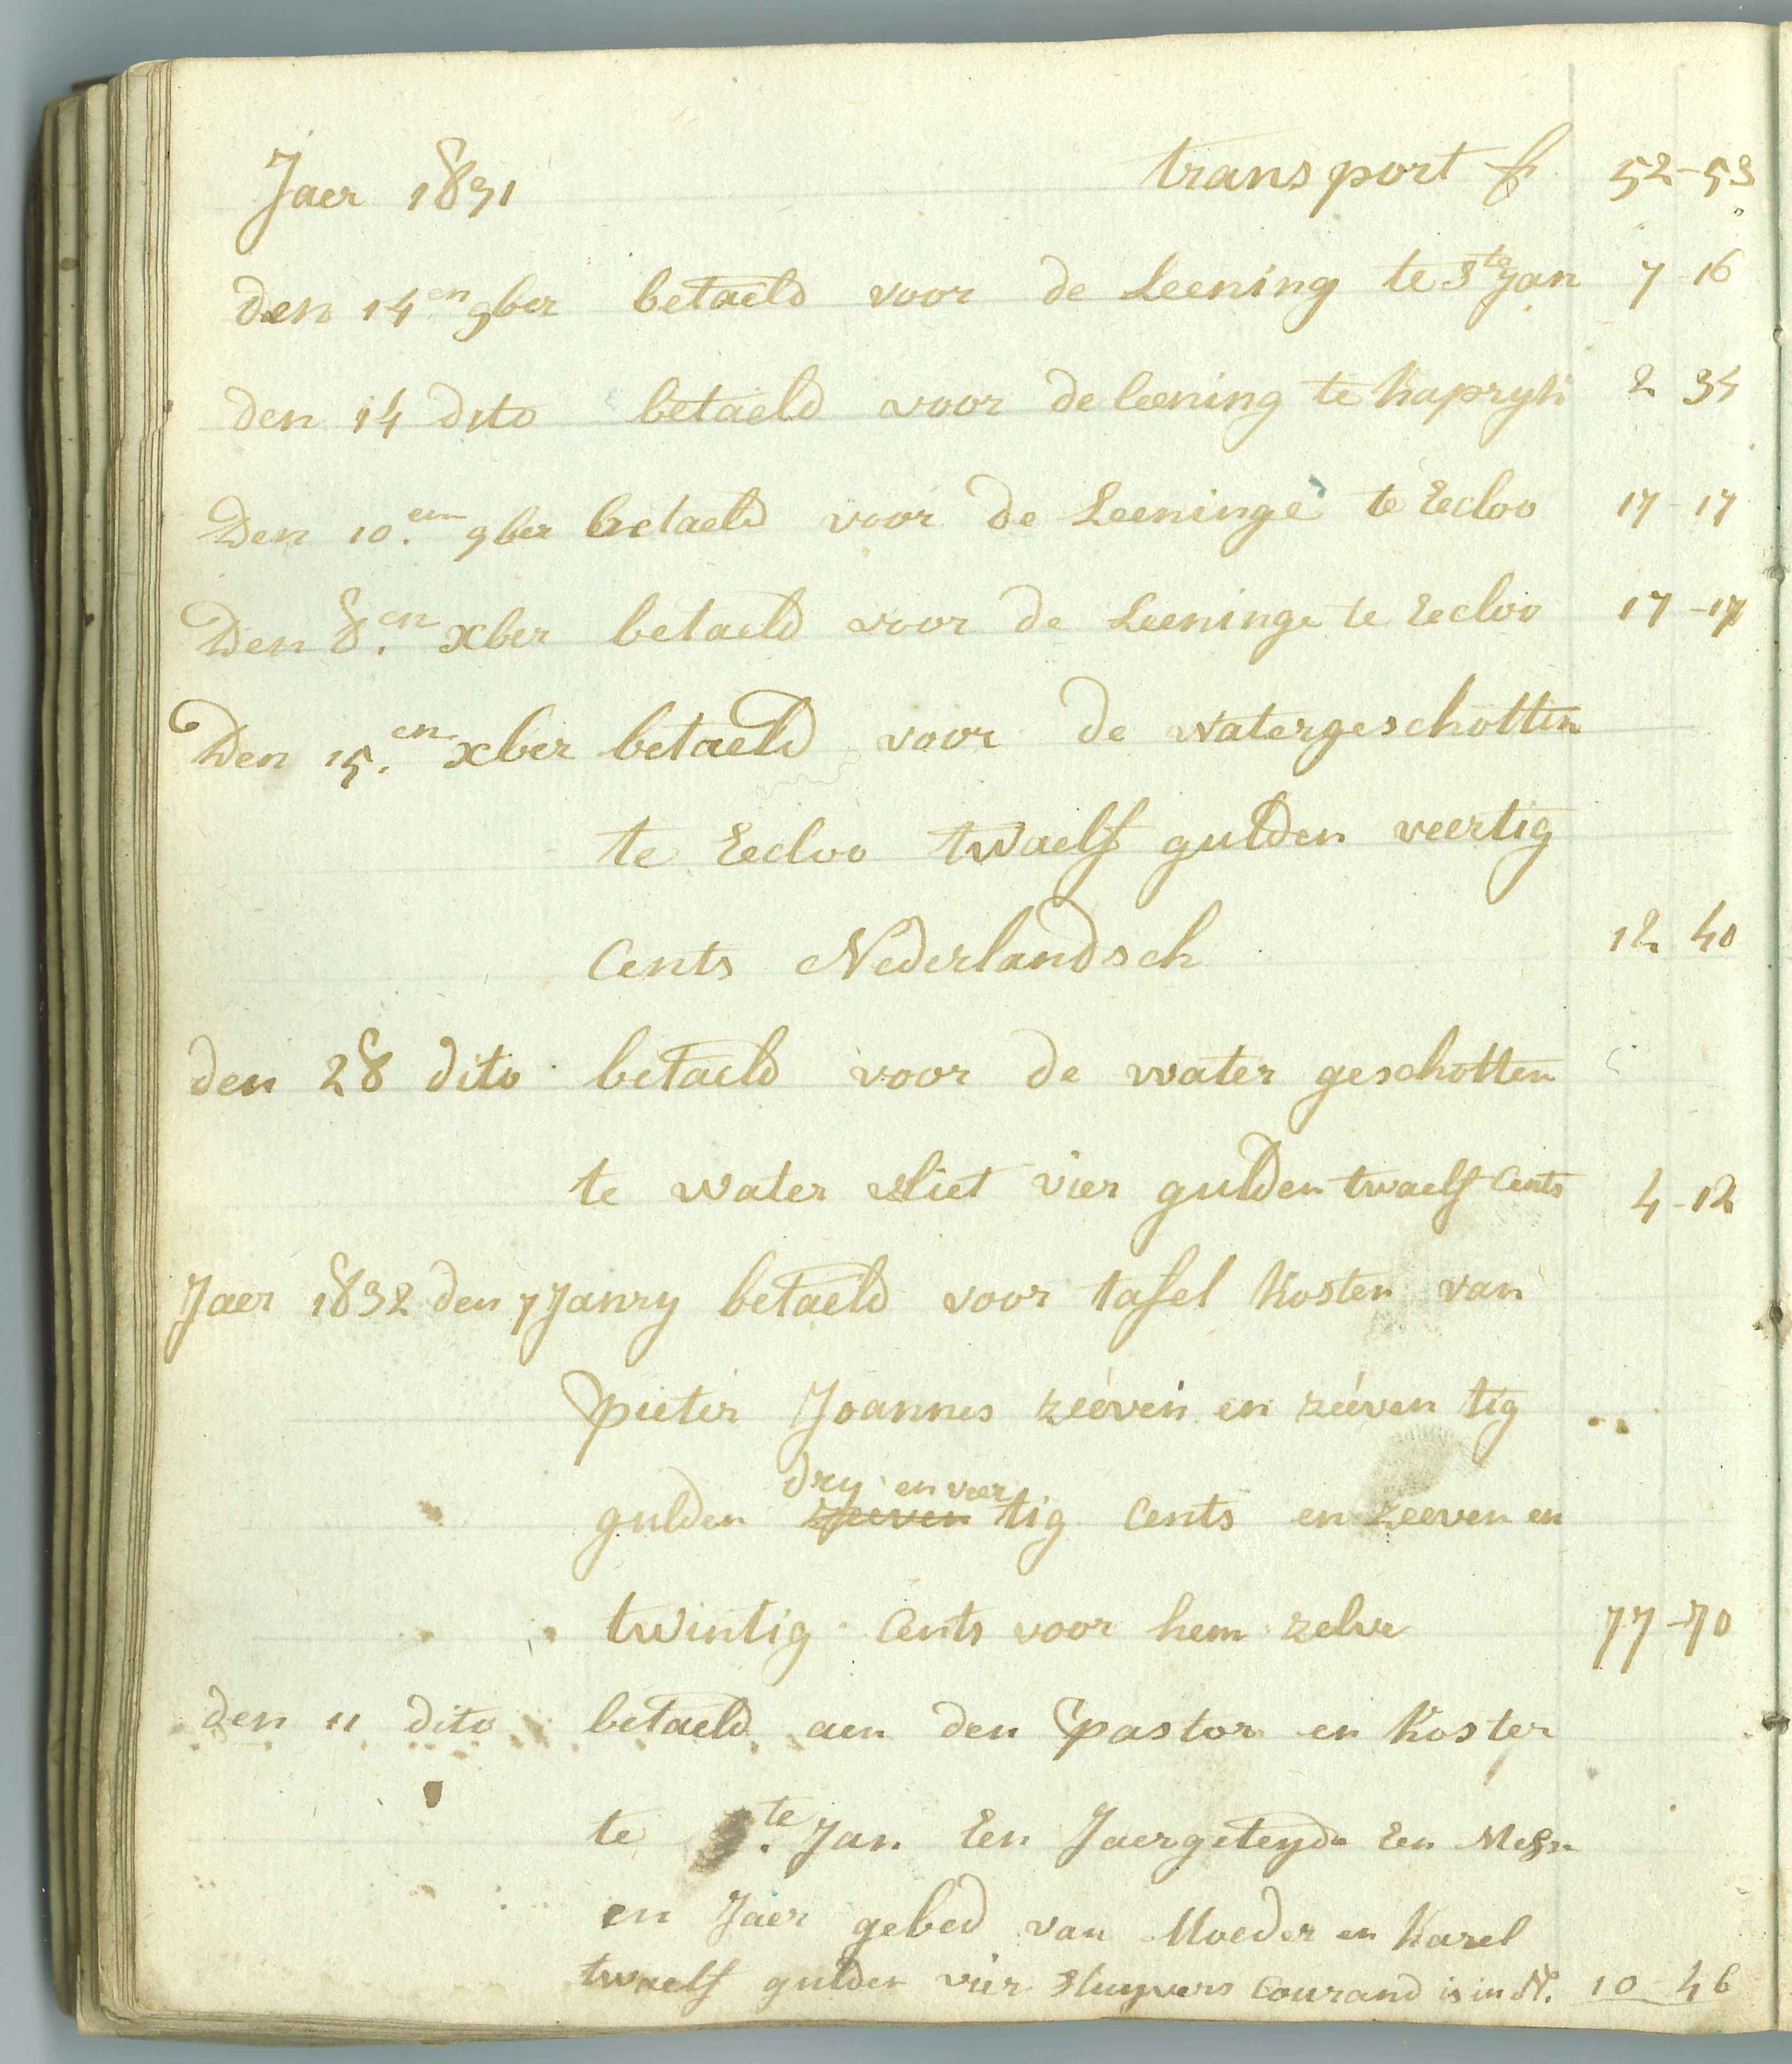 Jaer 1831 transport f 52-53
den 14en 9ber betaeld voor de Leening te Ste Jan 7 16
den 14 dito betaeld voor de leening te Kapryk 2 34
Den 10.en 9ber betaeld voor de Leeninge te Eecloo 17-17
Den 8.en xber betaeld voor de Leeninge te Eecloo 17-17
Den 15.en xber betaeld voor de watergeschotten
te Eecloo twaelf gulden veertig
Cents Nederlandsch 12 40
den 28 dito betaeld voor de water geschotten
te water vliet vier gulden twaelf Cents 4-12
Jaer 1832 den 7 Janry betaeld voor tafel Kosten van
pieter Joannes zeéven en zeéven tig
dry en veer
gulden zeeven tig Cents en zeeven en
twintig Cents voor hem zelve 77-70
den 11 dito betaeld aen den pastor en Koster
te S.te Jan Een Jaergeteyde Een Messe
en Jaer gebed van Moeder en Karel
twaelf gulden vier Stuyvers Courand is in N. 10-46